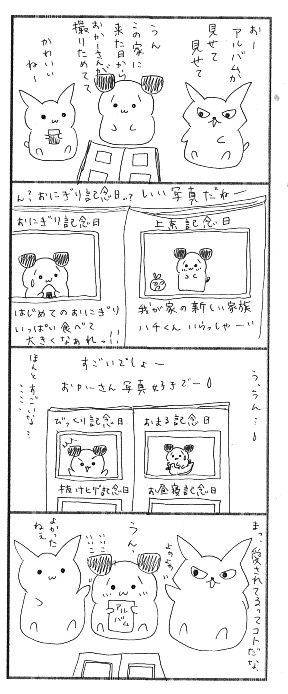 おー
アルバムか
見せて
見せて
うん
この家に
来た日から
おかーさんが
撮りためて
て
かわいい
ねー
しい写真だねー
ん?おにぎり記念日..?
上京記念日
我が家の新しい家族
ハチくん いらっしゃーい
おにぎり記念日
はじめてのおにぎり
いっぱい食べて
大きくなぁれっ!!
う、うん…!
すごいでしょー
おかーさん写真好きでー!
ほんとすごいな…
おまる記念日
お昼寝記念日
びっくり記念日
抜けヒゲ記念日
まっ、愛されてるってコトだな。
よのぉ
うん、
いいこ
いいこ
アル
バム
よかった
ねぇ